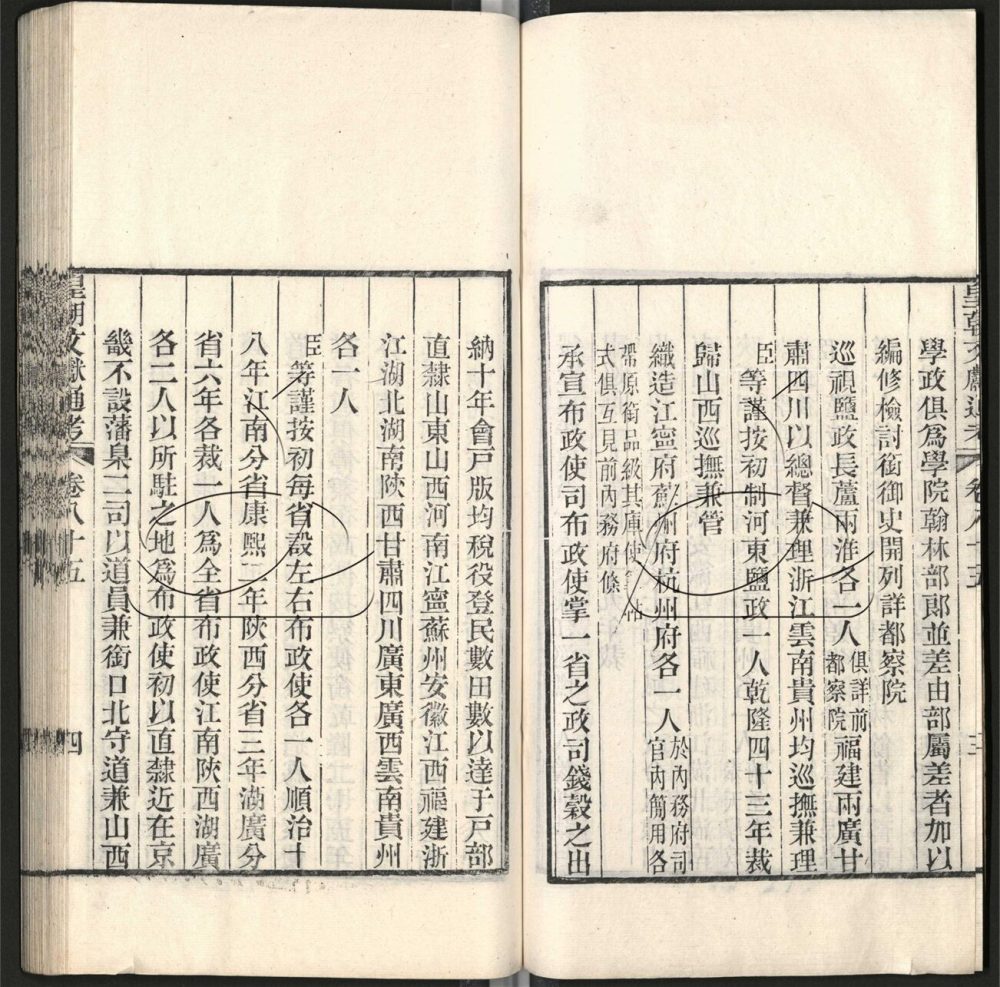 皇朝文獻通考 卷八十五 三
學政俱爲學院翰林部郎並差由部屬差者加以
編修檢討銜御史開列詳都察院
巡視鹽政長蘆兩淮各一人俱詳前都察院福建兩廣甘
肅四川以總督兼理浙江雲南貴州均巡撫兼理
臣等謹按初制河東鹽政一人乾隆四十三年裁
歸山西巡撫兼管
織造江寧府蘇州府杭州府各一人於內務府司官內簡用各
帶原銜品級其庫使筆帖
式俱互見前內務府條
承宣布政使司布政使掌一省之政司錢穀之出
納十年會戸版均稅役登民數田數以達于戸部
直隸山東山西河南江寧蘇州安徽江西福建浙
江湖北湖南陝西甘肅四川廣東廣西雲南貴州
各一人
臣等謹按初每省設左右布政使各一人順治十
八年江南分省康熙二年陝西分省三年湖廣分
省六年各裁一人爲全省布政使江南陝西湖廣
各二人以所駐之地爲布政使初以直隸近在京
畿不設藩臬二司以道員兼銜口北守道兼山西
皇朝文獻通考 卷八十五 四